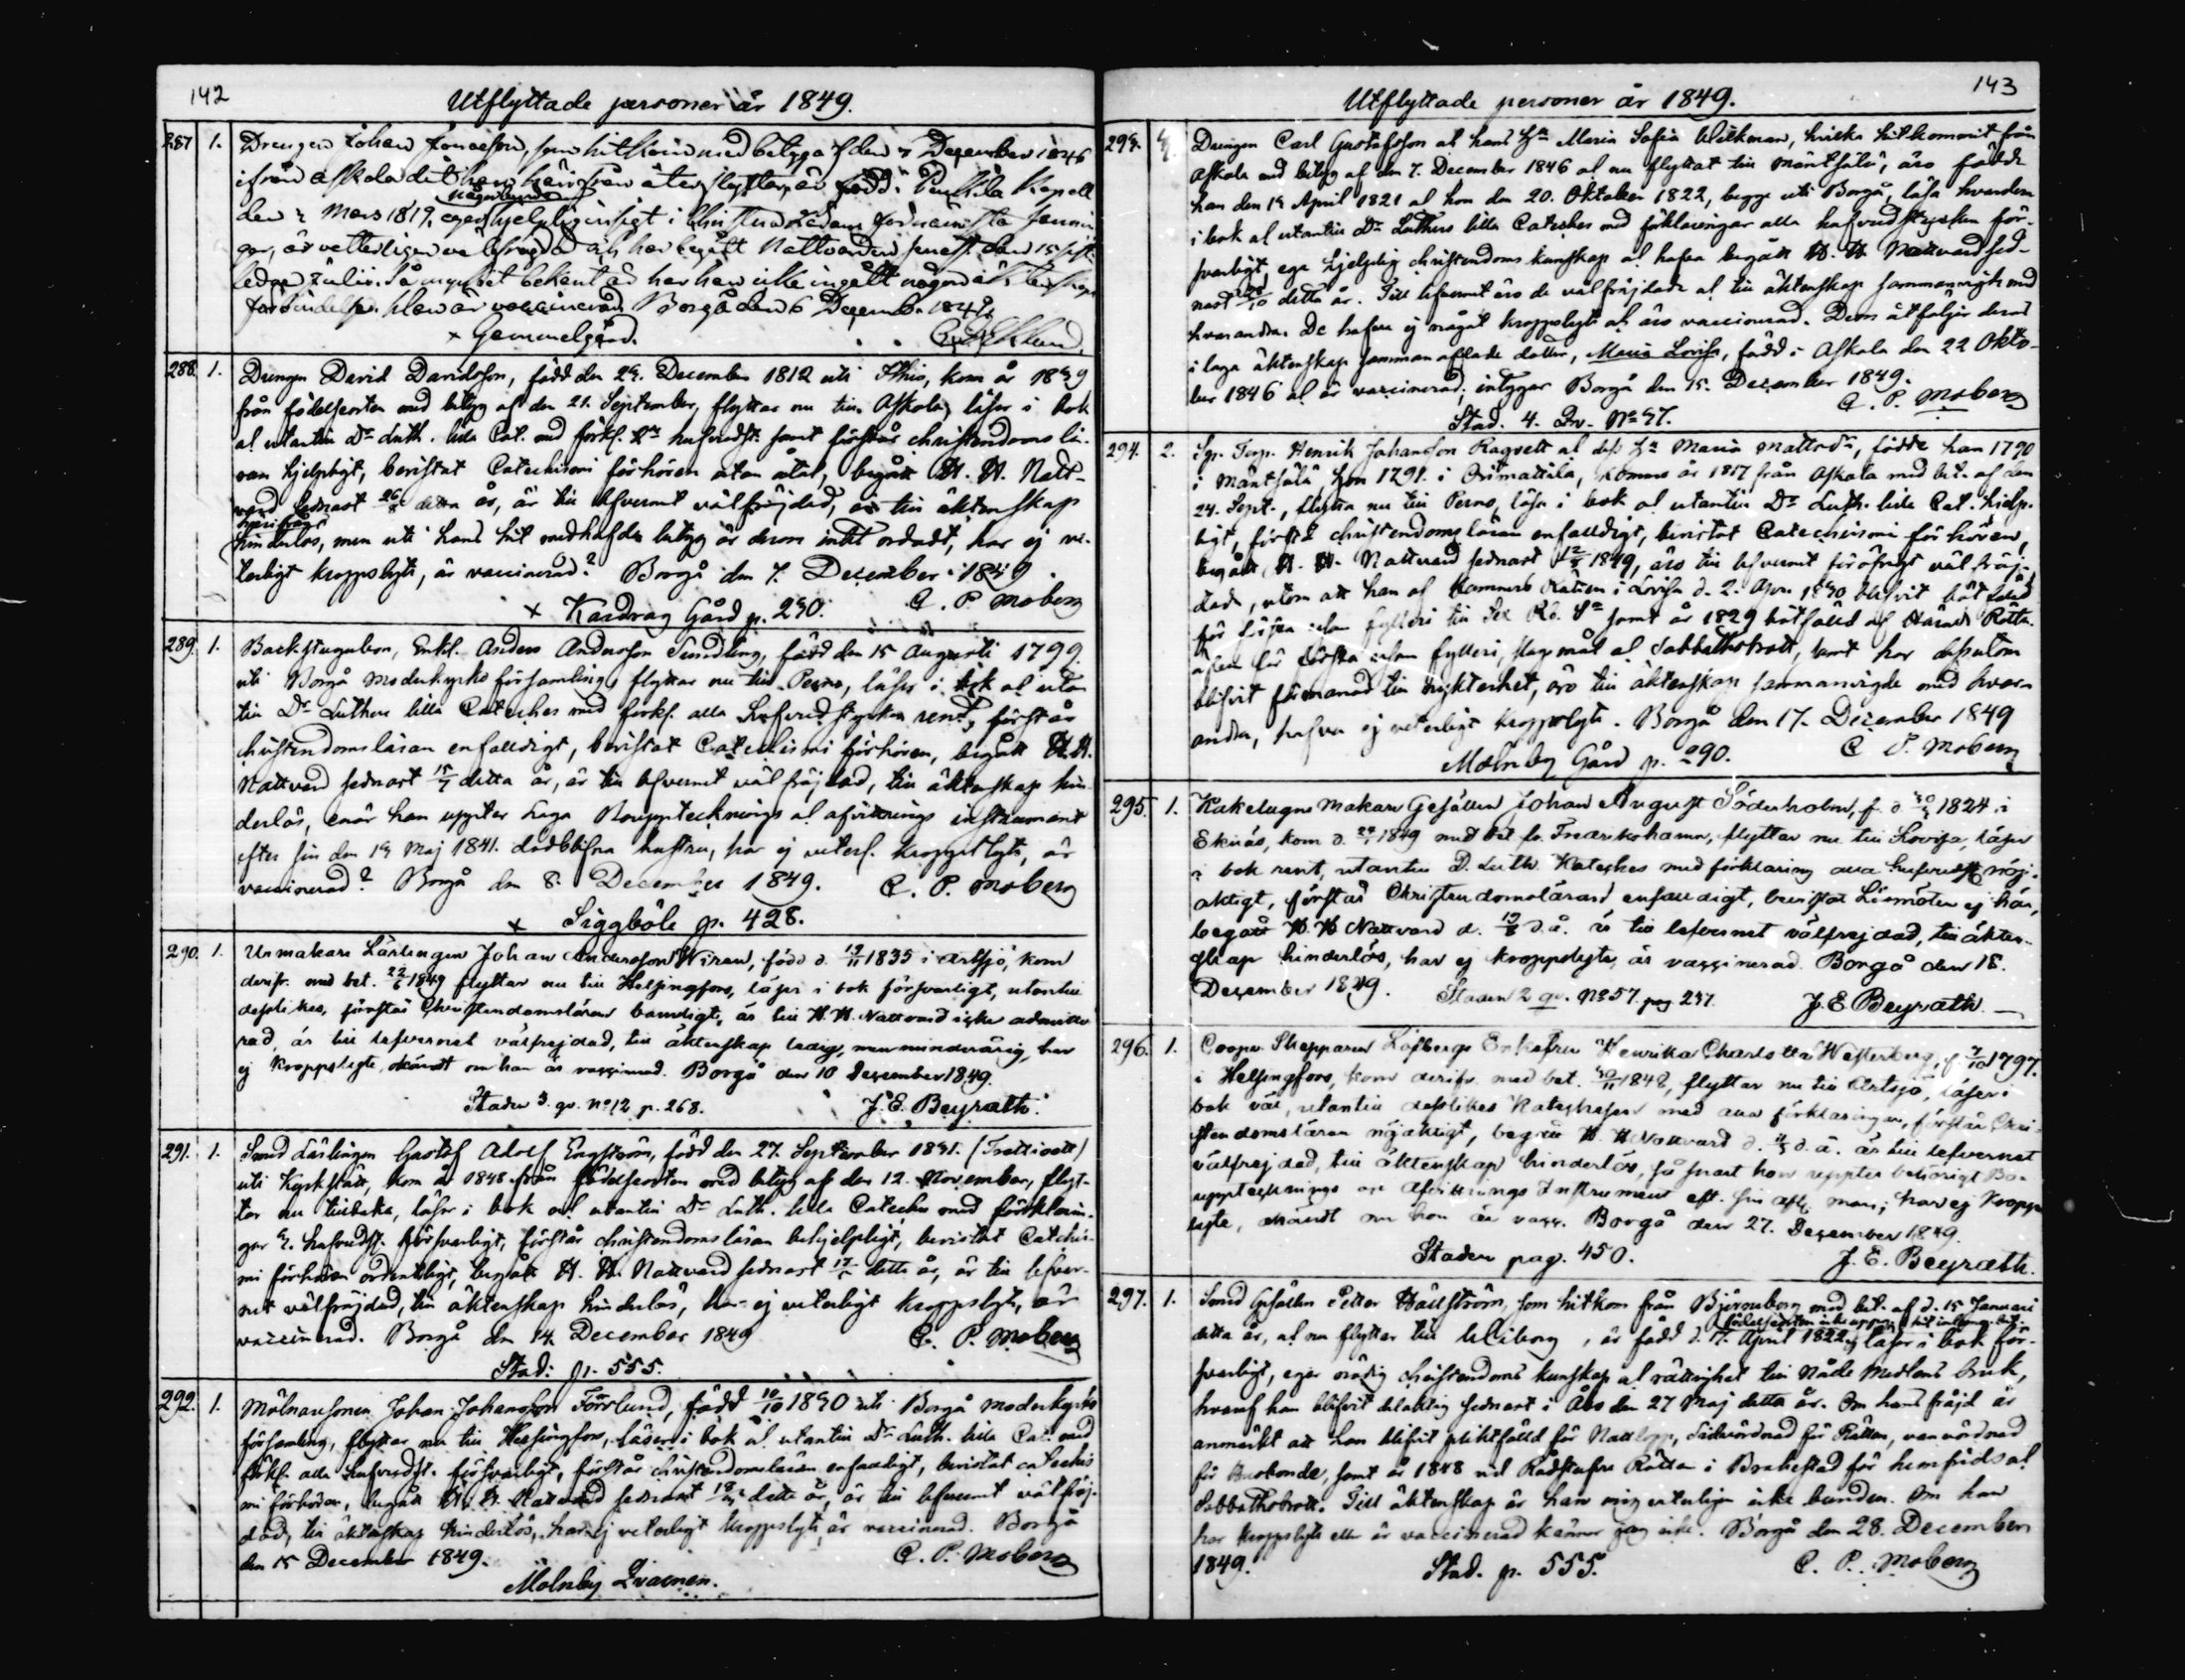 142
Utflyttade personer år 1849.
287 1. Drengen Johan som hitkom med betyg af den 7 December 1846
ifrån Askola dit han härifrån återflyttar, är född i Kapell
den 2 Mars 1819, eger hjelplig insigt i
någorlunda
är veterligen välfrägdad och har begått Nattvarden senast den 15 sist-
ledne Julii. Så mycket bekant är har han icke ingått någon äktenskaps
förbindelse. Han är vaccinerad. Borgå den 6 Decemb. 1849
x Gammelgård.
288. 1. Drengen David Davidsson, född den 29. December 1812 uti Ithis, kom år 1839
från födelseorten med betyg af den 21. September, flyttar nu till Askola, läser i bok
al utantill Dr Luth. lilla Cat. med förkl. hufvudst. samt förstår christendomslä-
ran hjelpligt, bevistat Catechismi förhören utan åtal, begått H. H. Natt-
vard sednast 26/8 detta år, är till lefvernet välfräjdad, är till äktenskap
härifrån
hinderlös, men uti hans hit medhafda betyg är derom intet ordadt, har ej ve-
terligt kroppslyte, är vaccinerad? Borgå den 7. December 1849.
x Kardrag Gård p. 230. C. P. Moberg
289. 1. Backstugubon, Enkl. Anders Andersson Sundberg, född den 15 Augusti 1799
uti Borgå moderkyrko församling, flyttar nu till Perno, läser i bok al utan
till Dr Luthers lilla Cateches med förkl. alla hufvudstycken rent, förstår
christendomsläran enfalldigt, bevistat Catechismi förhören, begått H. H.
Nattvard sednast 15/7 detta år, är till lefvernet välfräjdad, till äktenskap hin-
derlös, enär han uppter Laga Bouppteknings al afvittrings instrument
efter sin den 19 Maj 1841. dödblifna hustru, har ej veterl. kroppslyte, är
vaccinerad? Borgå den 8. December 1849. C. P. Moberg
x Siggböle p. 428.
290. 1. Urmakare Lärlingen Johan Andersson Wiren, född d. 19/11 1835 i Artsjö, kom
derifr. med bet. 22/6 1849 flyttar nu till Helsingfors, läser i bok försvarligt, utantill
desslikes, förstår Christendomsläran barnsligt, är till H. H. Nattvard icke admitte
rad, är till lefvernet välfrejdad, till äktenskap ledig, men minderårig, har
ej Kroppslyte, okändt om han är vaccinerad. Borgå den 10 December 1849.
Staden 3. qv. No 12 p. 268. J. E. Beyrath.
291. 1. Smed Lärlingen Gustaf Adolf Engström, född den 27. September 1831. (Trettioett)
uti Kyrkslätt, kom år 1848 från födelseorten med betyg af den 12. November, flyt-
tar nu tillbaka, läser i bok al utantill Dr Luth. lilla Cateches med förklarin-
gar hufvudst. försvarligt, förstår christendomsläran behjelpligt, bevistat Catechis-
mi förhören ordentligt, begått H. H. Nattvard sednast detta år, är till lefver-
net välfräjdad, till äktenskap hinderlös, har ej veterligt kroppslyte, är
vaccinerad. Borgå den 14. December 1849 C. P. Moberg
Stad. p. 555.
292. 1. Mölnaresonen Johan Johansson Forslund, född 10/10 1830 uti Borgå moderkyrko
församling, flyttar nu till Helsingfors, läser i bok al utantill Dr Luth. lilla Cat. med
förkl. alla hufvudst. försvarligt, förstår christendomsläran enfaldigt, bevistat catechis
mi förhören, begått H. H. Nattvard sednast detta år, är till lefvernet välfräj-
dad, till äktenskap hinderlös, har ej veterligt kroppslyte, är vaccinerad. Borgå
den 15 December 1849. C. P. Moberg
Mölnby Qvarnen.
143
Utflyttade personer år 1849.
293. 4. Drengen Carl Gustafsson al hans Hu Maria Sofia Wekman, hvilka hitkommit från
Askola med betyg af den 7. December 1846 al nu flyttat till Mäntsälä, äro födde
han den 19 April 1821 al hon den 20. Oktober 1822, begge uti Borgå, läsa hvardera
i bok al utantill Dr Luthers lilla Cateches med förklaringar alla hufvudstycken för-
svarligt, ega hjelplig christendoms kunskap al hafva begått H. H. Nattvard sed-
nast detta år. Till lefvernet äro de välfräjdade al till äktenskap sammanvigde med
hvarandra. De hafva ej något kroppslyte al äro vaccinerad. Dem åtföljer deras
i laga äktenskap sammanaflade dotter, Maria Lovisa, född i Askola den 22 Okto-
ber 1846 al är vaccinerad; intygar Borgå den 15. December 1849.
Stad. 4. Qv. No 47. C. P. Moberg
294. 2. Sp. Torp. Henrik Johansson Ragvett al dess Hu Maria Mattsdr, födde han 1790
i Mäntsälä, hon 1791. i Orimattila, komna år 1817 från Askola med bet. af den
24. Sept., flytta nu till Perno, läsa i bok al utantill Dr Luth. lilla Cat. hjelp-
ligt, förstå christendomsläran enfalldigt, bevistat Catechismi förhören,
begått H. H. Nattvard sednast 1849, äro till lefvernet för öfrigt välfräj-
dade, utom att han af Kommers Rätten i Lovisa d. 2. Apr. blifvit bötfälld
för första resan fylleri till Sex Ro. Sr samt år 1829 bötfälld af Härads Rätten
för första resan fylleri, slagsmål al Sabbathsbrott, samt har dessutom
blifvit förmanad till nykterhet, äro till äktenskap sammanvigde med hvar-
andra, hafva ej veterligt kroppslyte. Borgå den 17. December 1849
Mölnby Gård p. 290. C. P. Moberg
295. 1. Kakelugns Makare Gesällen Johan August Söderholm, f. d. 1824 i
Ekenäs, kom d. 1849 med bet. fr. Fredrikshamn, flyttar nu till Lovisa, läser
i bok rent, utantill D. Luth. Kateches med förklaring alla hufvudst. nöj-
aktigt, förstår Christendomsläran enfaldigt, bevistat Läsmöten ej här,
begått H. H. Nattvard d. d. å. är till lefvernet välfrejdad, till äkten-
skap hinderlös, har ej kroppslyte, är vaccinerad. Borgå den 18.
December 1849. Staden 2 qv. No 57. pag 237. J. E. Beyrath.
296. 1. Coopv. Skepparen Löfbergs Enkefru Henrika Charlotta Westerberg, f. 7/10 1797.
i Helsingfors, kom derifr. med bet. 30/11 1848, flyttar nu till Artsjö, läser i
bok väl, utantill desslikes Katechesen med alla förklaringar, förstår Chri-
stendomsläran nöjaktigt, begått H. H. Nattvard d. d. å. är till lefvernet
välfrejdad, till äktenskap hinderlös, så snart hon uppter behörigt Bo-
upptecknings och Afvittrings Instrument eft. sin afl. man; har ej Kropps
lyte, okändt om hon är vacc. Borgå den 27. December 1849.
Staden pag. 450. J. E. Beyrath.
297. 1. Smed Gesällen Petter Hällström, som hitkom från Björneborg med bet. af d. 15 Januari
detta år, al nu flyttar till Wiborg, är född d. 17. April 1822, läser i bok för-
svarligt, eger nödig christendoms kunskap al rättighet till Nåde Medlens bruk,
hvaraf han blifvit delaktig sednast i Åbo den 27 Maj detta år. Om hans fräjd är
anmärkt att han blifvit pliktfälld för Nattlopp, Sidvördnad för Rätten, vanvördnad
för Husbonde, samt år 1848 vid Rådstufvu Rätten i Brahestad för hemfrids al
Sabbathsbrott. Till äktenskap är han mig veterligen icke bunden. Om han
har kroppslyte eller är vaccinerad känner jag icke. Borgå den 28. December
1849. Stad. p. 555. C. P. Moberg